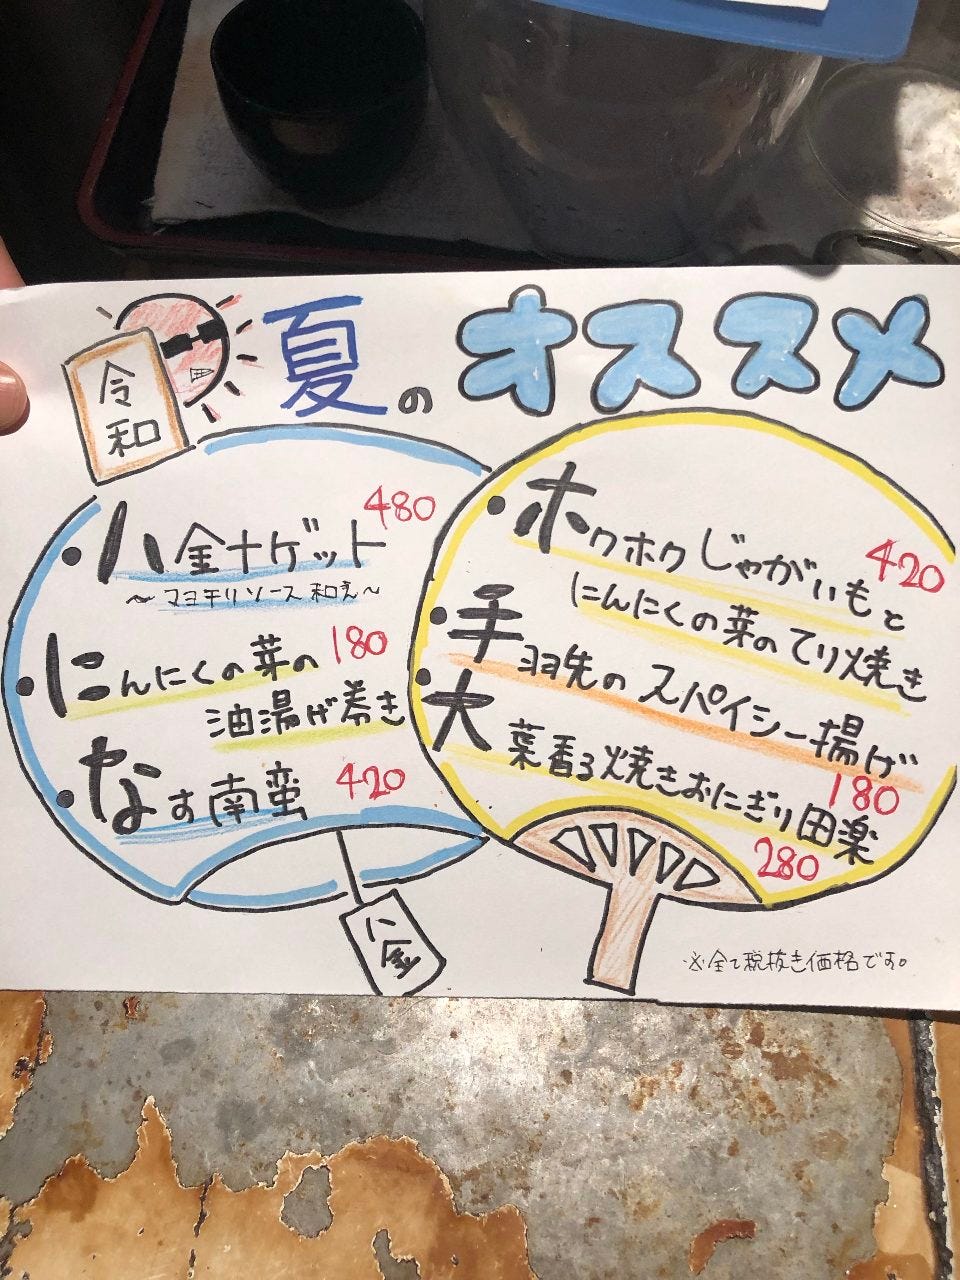 令和
夏のオススメ
・八金ナゲット 480
～マヨチリソース和え～
・にんにくの芽の 180
油揚げ巻き
・なす南蛮 420
に金
・ホクホクじゃがいもと 420
にんにくの芽のてり焼き
・手羽先のスパイシー揚げ
180
・大葉香る焼きおにぎり田楽
280
※全て税抜き価格です。